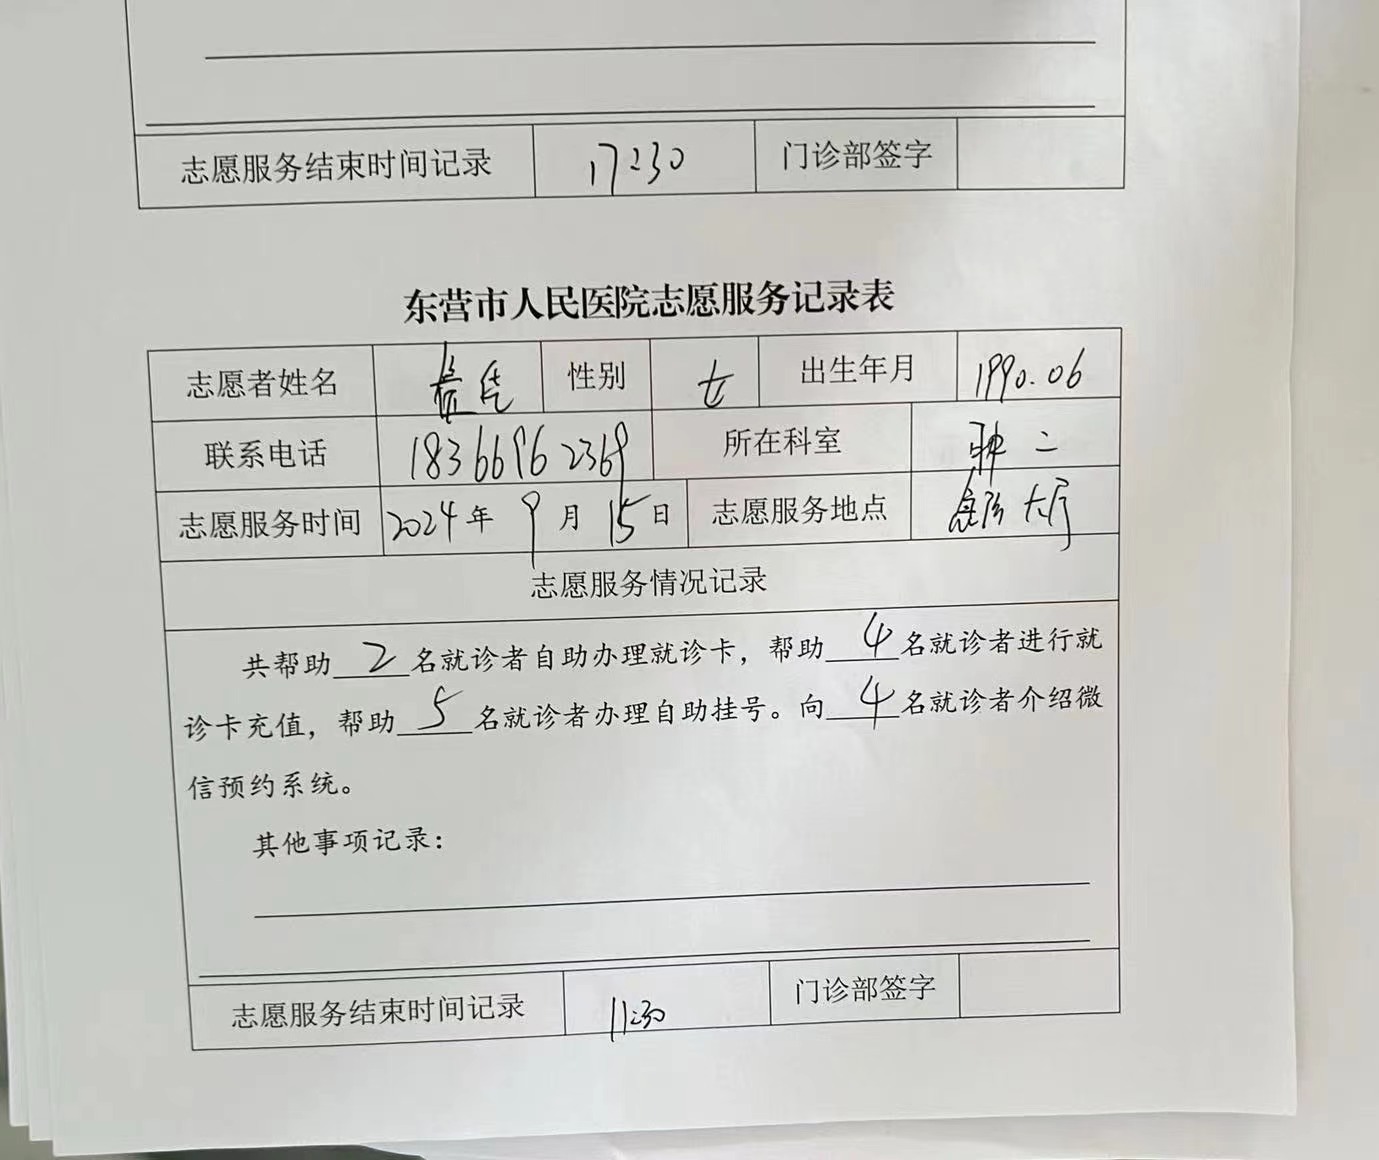 志愿服务结束时间记录 17:30 门诊部签字
东营市人民医院志愿服务记录表
志愿者姓名 性别 女 出生年月 1990.06
联系电话 18366962369 所在科室 肿二
志愿服务时间 2024年9月15日 志愿服务地点 大厅
志愿服务情况记录
共帮助2名就诊者自助办理就诊卡，帮助4名就诊者进行就
诊卡充值，帮助5名就诊者办理自助挂号。向4名就诊者介绍微
信预约系统。
其他事项记录：
志愿服务结束时间记录 11:30 门诊部签字